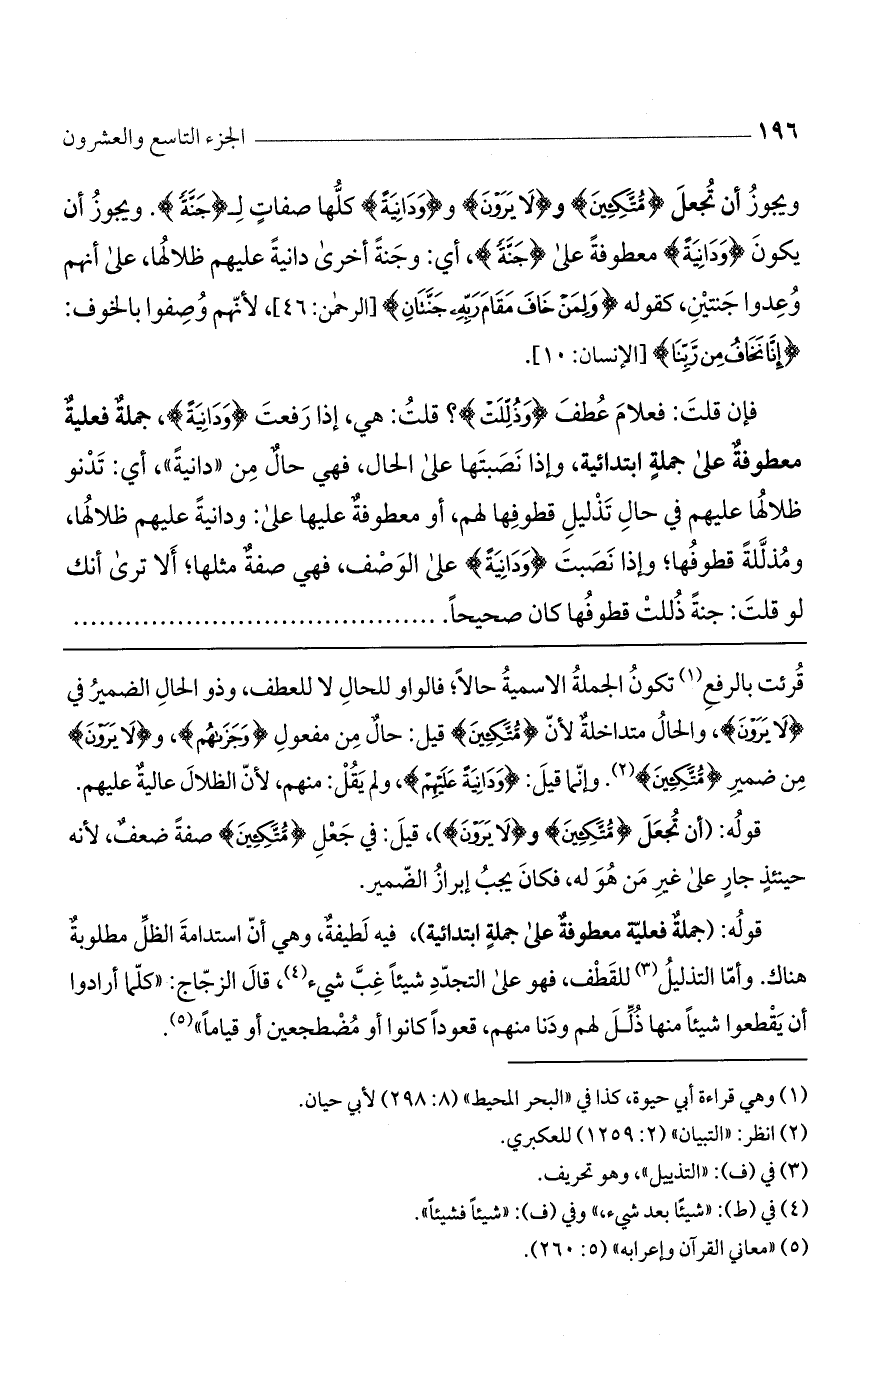 ١٩٦ الجزء التاسع والعشرون
ويجوزُ أن تُجعلَ ﴿مُتَّكِئِينَ﴾ و﴿لَا يَرَوْنَ﴾ و﴿وَدَانِيَةً﴾ كلُّها صفاتٍ لِـ﴿جَنَّةً﴾. ويجوزُ أن
يكونَ ﴿وَدَانِيَةً﴾ معطوفةً علىٰ ﴿جَنَّةً﴾، أي: وجَنةً أخرىٰ دانيةً عليهم ظلالهُا، علىٰ أنهم
وُعِدوا جَنتيْنِ، كقوله ﴿وَلِمَنْ خَافَ مَقَامَ رَبِّهِۦ جَنَّتَانِ﴾ [الرحمٰن: ٤٦]، لأنّهم وُصِفوا بالخوف:
﴿إِنَّا نَخَافُ مِن رَّبِّنَا﴾ [الإنسان: ١٠].
فإن قلتَ: فعلامَ عُطفَ ﴿وَذُلِّلَتْ﴾؟ قلتُ: هي، إذا رَفعتَ ﴿وَدَانِيَةً﴾، جملةٌ فعليةٌ
معطوفةٌ علىٰ جملةٍ ابتدائية، وإذا نَصَبتَها علىٰ الحال، فهي حالٌ مِن «دانيةً»، أي: تَدْنو
ظلالهُا عليهم في حالِ تَذْليلِ قطوفِها لهم، أو معطوفةٌ عليها علىٰ: ودانيةً عليهم ظلالهُا،
ومُذلَّلةً قطوفُها؛ وإذا نَصَبتَ ﴿وَدَانِيَةً﴾ علىٰ الوَصْف، فهي صفةٌ مثلها؛ أَلا ترىٰ أنك
لو قلتَ: جنةً ذُللتْ قطوفُها كان صحيحاً. ........................................
قُرئت بالرفعِ(١) تكونُ الجملةُ الاسميةُ حالاً؛ فالواو للحالِ لا للعطف، وذو الحالِ الضميرُ في
﴿لَا يَرَوْنَ﴾، والحالُ متداخلةٌ لأنّ ﴿مُتَّكِئِينَ﴾ قيل: حالٌ مِن مفعولِ ﴿وَجَزَىٰهُم﴾، و﴿لَا يَرَوْنَ﴾
مِن ضميرِ ﴿مُتَّكِئِينَ﴾(٢). وإنّما قيلَ: ﴿وَدَانِيَةً عَلَيْهِمْ﴾، ولم يَقُلْ: منهم، لأنّ الظلالَ عاليةٌ عليهم.
قولُه: (أن تُجعَلَ ﴿مُتَّكِئِينَ﴾ و﴿لَا يَرَوْنَ﴾)، قيلَ: في جَعْلِ ﴿مُتَّكِئِينَ﴾ صفةً ضعفٌ، لأنه
حينئذٍ جارٍ علىٰ غيرِ مَن هُوَ له، فكانَ يجبُ إبرازُ الضّمير.
قولُه: (جملةٌ فعليّة معطوفةٌ علىٰ جملةٍ ابتدائية)، فيه لَطيفةٌ، وهي أنّ استدامةَ الظلِّ مطلوبةٌ
هناك. وأمّا التذليلُ(٣) للقَطْف، فهو علىٰ التجدّدِ شيئاً غِبَّ شيء(٤)، قالَ الزجّاج: «كلّما أرادوا
أن يَقْطعوا شيئاً منها ذُلِّـلَ لهم ودَنا منهم، قعوداً كانوا أو مُضْطجعين أو قياماً»(٥).
(١) وهي قراءة أبي حيوة، كذا في «البحر المحيط» (٨: ٢٩٨) لأبي حيان.
(٢) انظر: «التبيان» (٢: ١٢٥٩) للعكبري.
(٣) في (ف): «التذييل»، وهو تحريف.
(٤) في (ط): «شيئًا بعد شيء،» وفي (ف): «شيئاً فشيئاً».
(٥) «معاني القرآن وإعرابه» (٥: ٢٦٠).